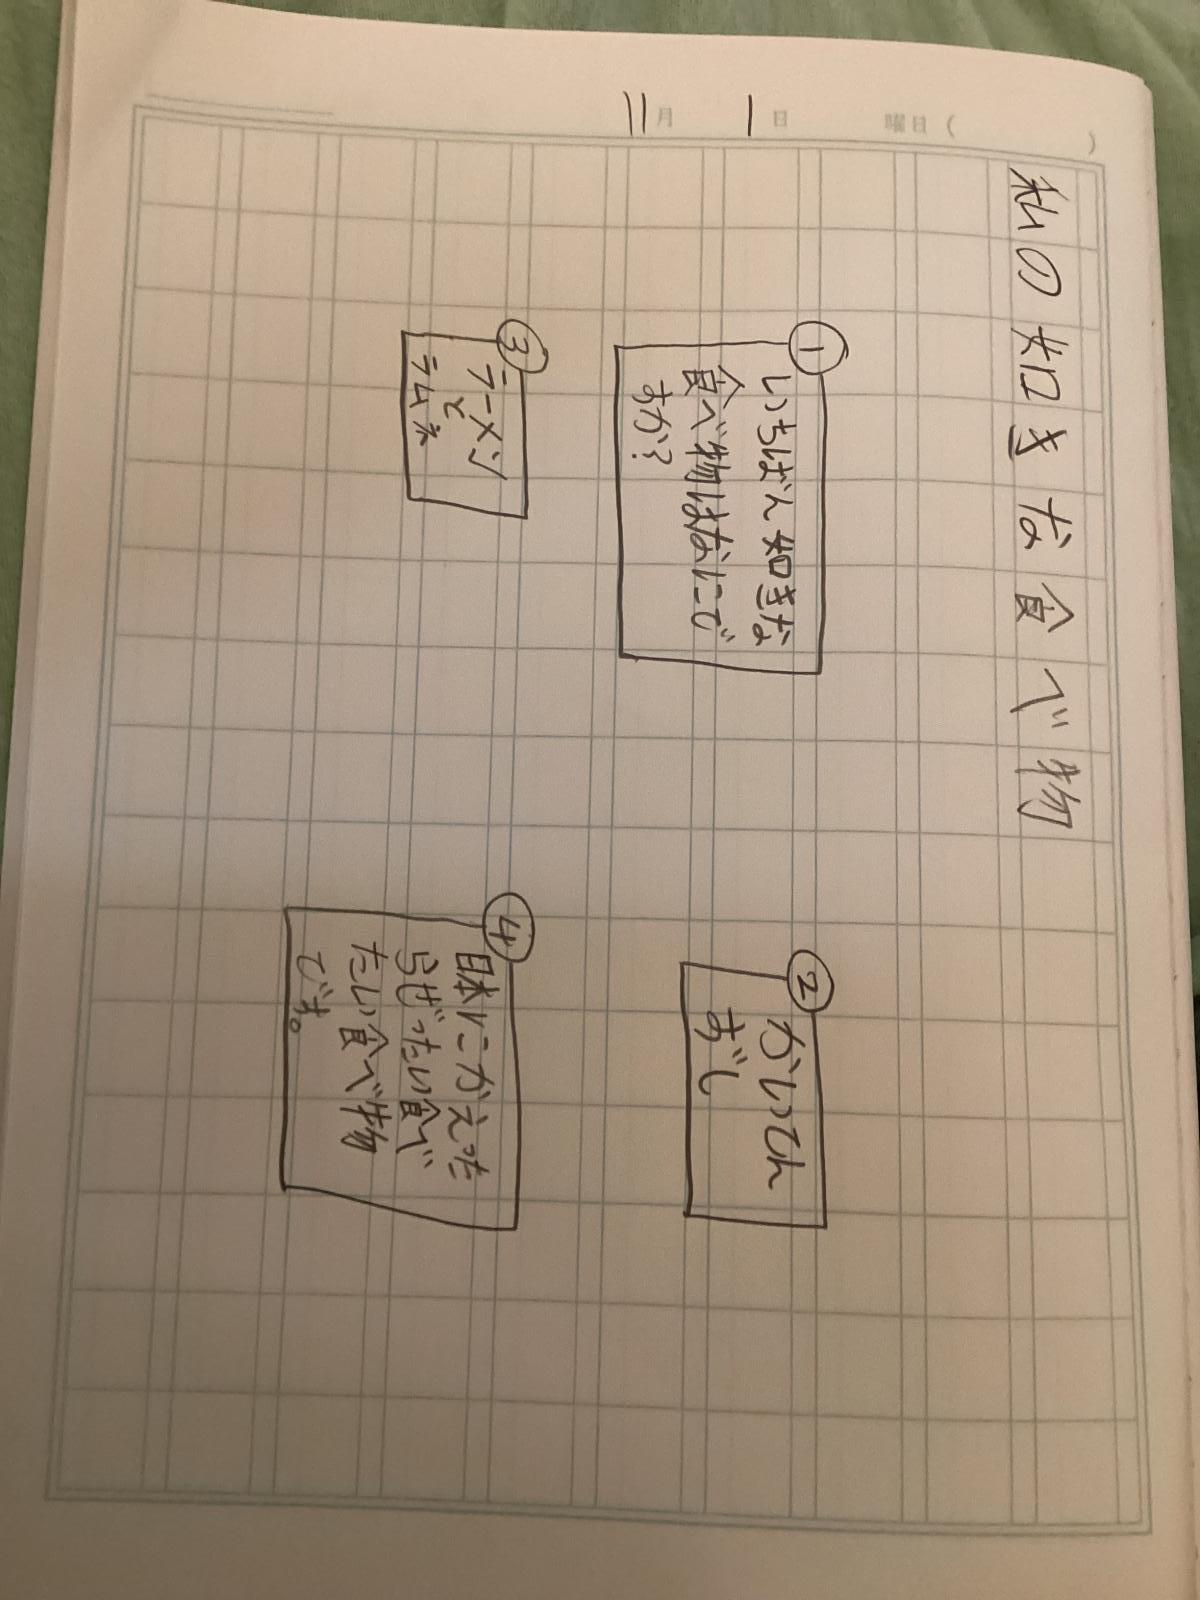 11月 1日 曜日（ ）
私の如きな食べ物
①
いちばん如きな
食べ物はなにで
すか？
②
かいてん
ずし
③
ラーメン
と
ラムネ
④
日本にかえった
らぜったい食べ
たい食べ物
です。